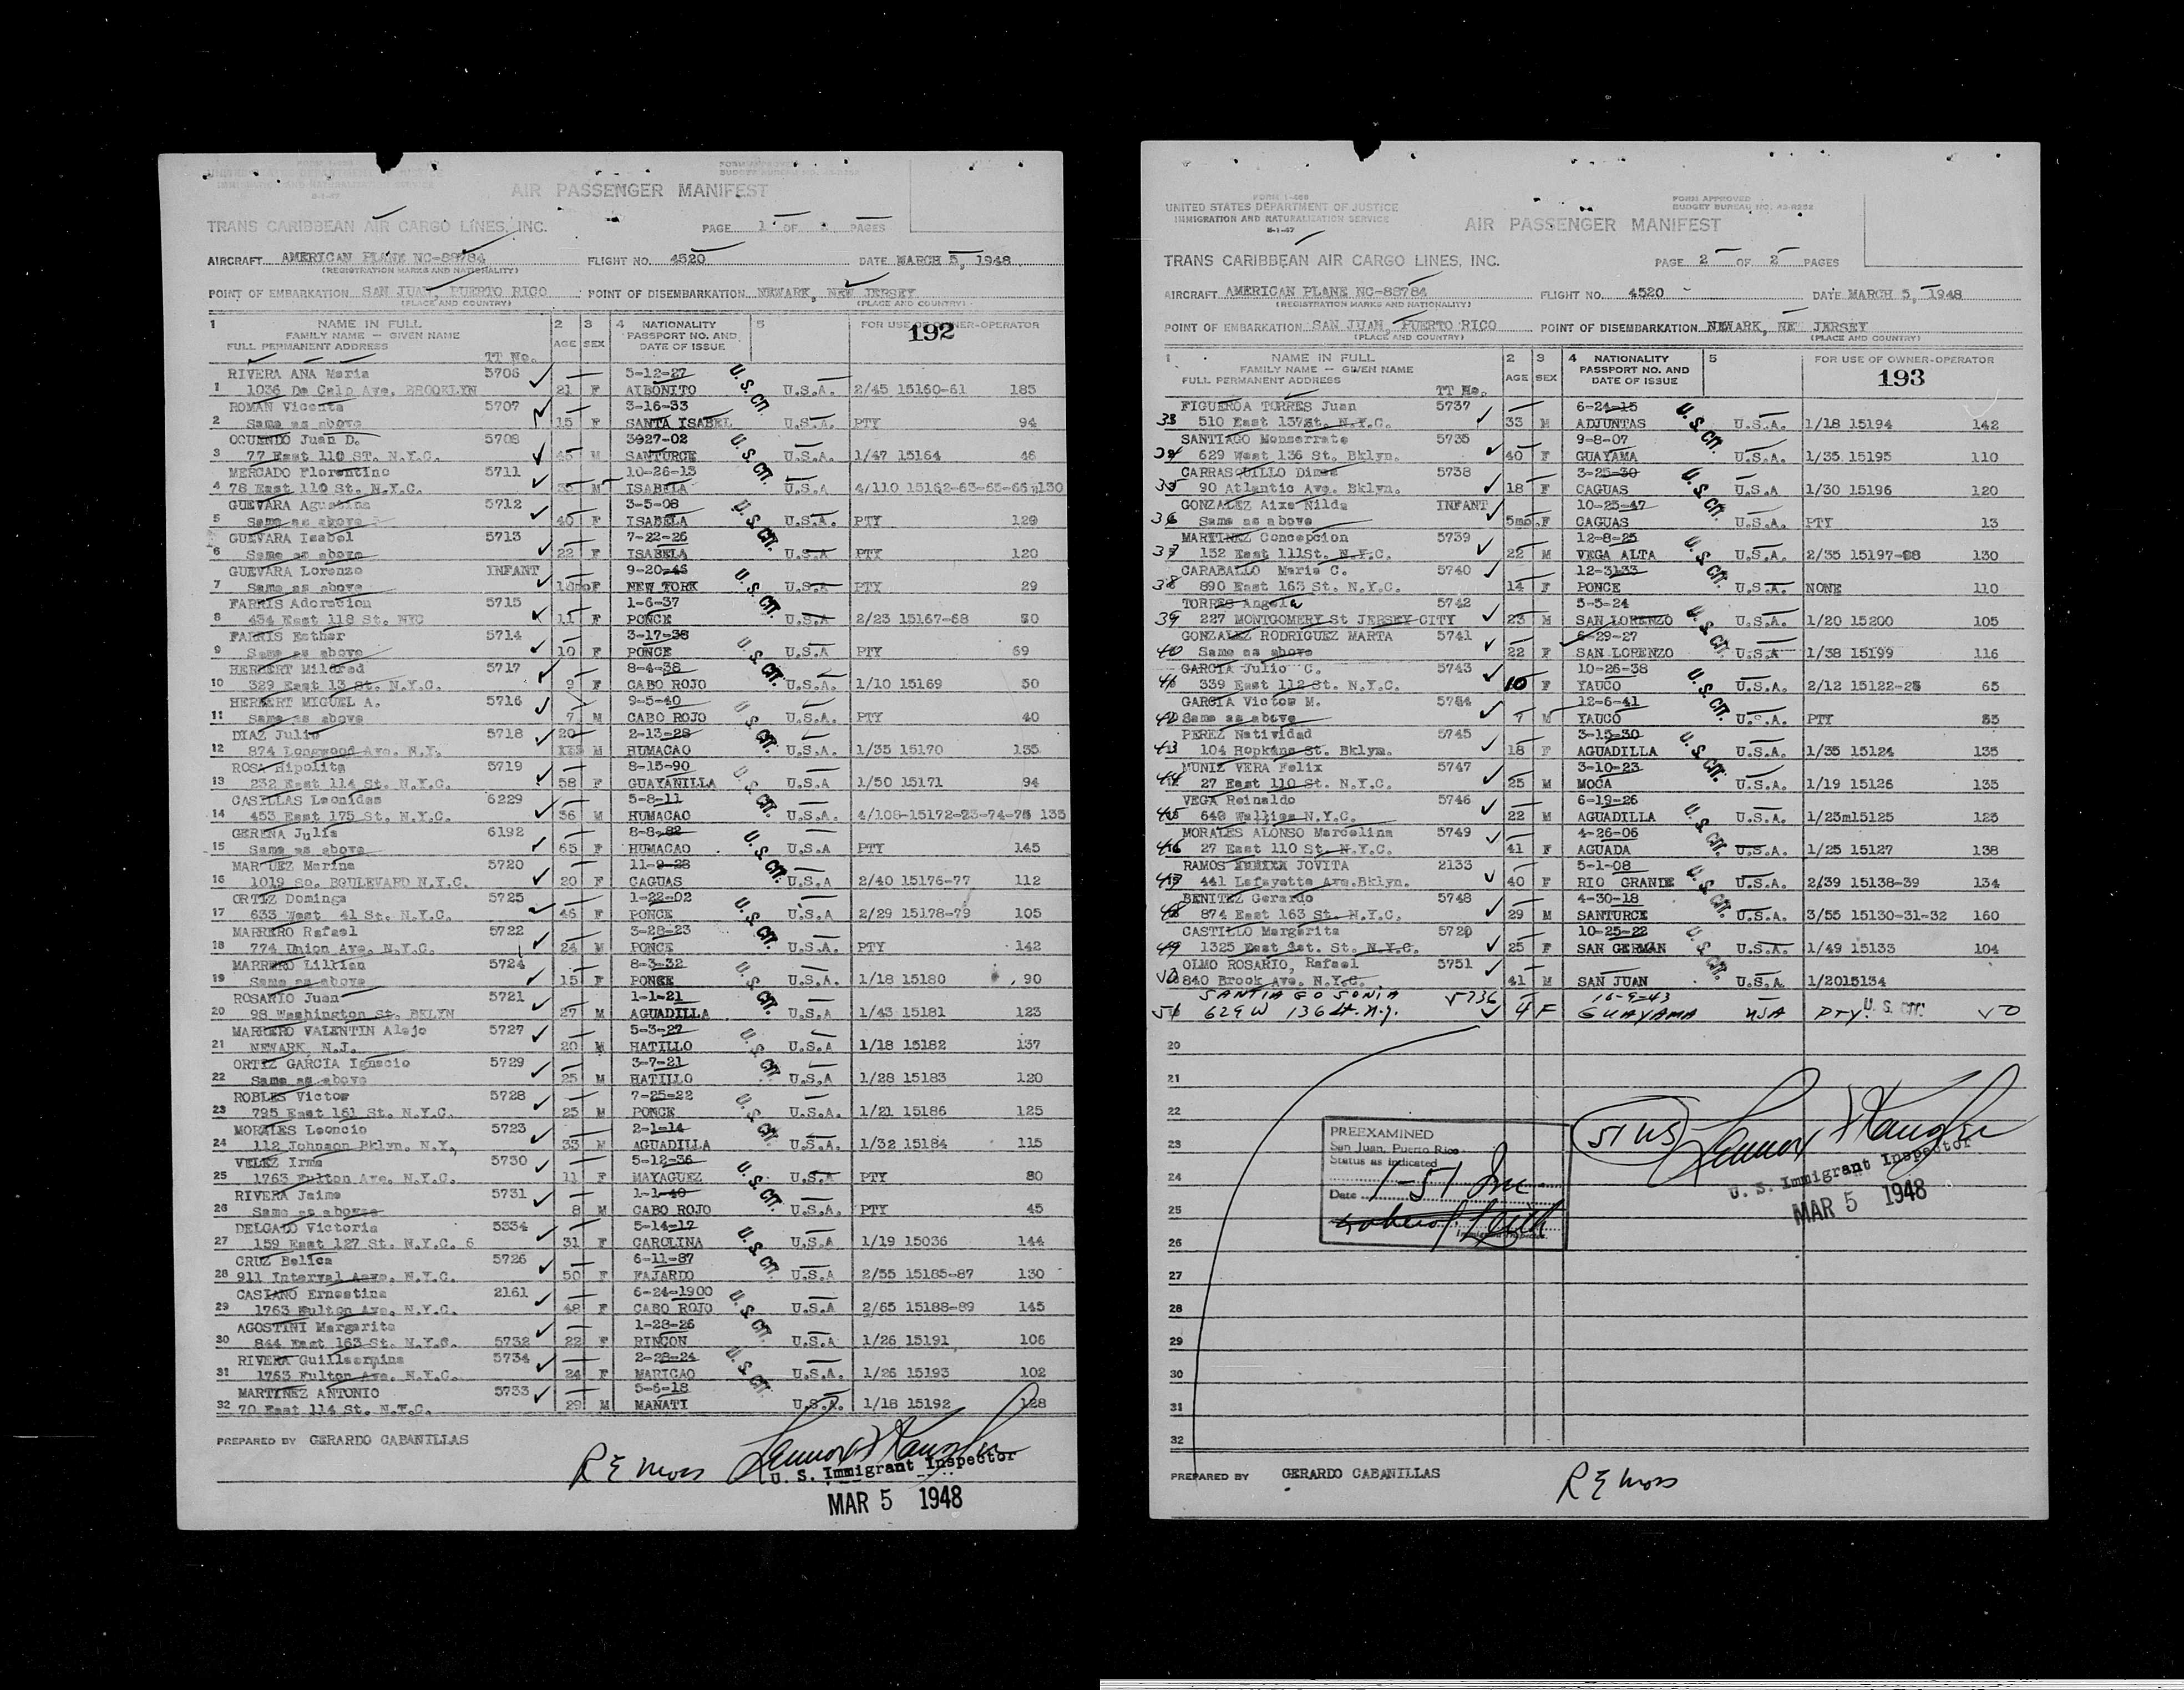 FORM APPROVED
AIR PASSENGER MANIFEST
TRANS CARIBBEAN AIR CARGO LINES, INC.
PAGE 1 OF PAGES
AIRCRAFT AMERICAN PLANE NC-88784 FLIGHT NO. 4520 DATE MARCH 5, 1948
(REGISTRATION MARKS AND NATIONALITY)
POINT OF EMBARKATION SAN JUAN, PUERTO RICO POINT OF DISEMBARKATION NEWARK, NEW JERSEY
(PLACE AND COUNTRY) (PLACE AND COUNTRY)
1 NAME IN FULL 2 3 4 NATIONALITY 5 FOR USE OF OWNER-OPERATOR
192
FAMILY NAME — GIVEN NAME AGE SEX PASSPORT NO. AND
FULL PERMANENT ADDRESS TT No. DATE OF ISSUE
RIVERA ANA Maria 5706 5-12-27 U.S. CIT.
1 1036 De Calp Ave, BROOKLYN 21 F AIBONITO U.S.A. 2/45 15160-61 185
ROMAN Vicenta 5707 3-16-33
2 Same as above 15 F SANTA ISABEL U.S.A. PTY 94
OCUENDO Juan D. 5708 3927-02 U.S. CIT.
3 77 East 110 ST. N.Y.C. M SANTURCE U.S.A. 1/47 15164 46
MERCADO Florentino 5711 10-26-13
4 78 East 110 St. N.Y.C. M ISABELA U.S.A 4/110 15162-63-65-66 130
GUEVARA Agustina 5712 3-5-08 U.S. CIT.
5 Same as above 40 F ISABELA U.S.A. PTY 129
GUEVARA Isabel 5713 7-22-26
6 Same as above 22 F ISABELA U.S.A PTY 120
GUEVARA Lorenzo INFANT 9-20-46 U.S. CIT.
7 Same as above F NEW YORK U.S.A PTY 29
FARRIS Adoracion 5715 1-6-37
8 434 East 118 St. NYC 11 F PONCE U.S.A 2/23 15167-68 80
FARRIS Esther 5714 3-17-38 U.S. CIT.
9 Same as above 10 F PONCE U.S.A PTY 69
HERBERT Mildred 5717 8-4-38
10 329 East 13 St. N.Y.C. 9 F CABO ROJO U.S.A. 1/10 15169 50
HERBERT MIGUEL A. 5716 9-5-40 U.S. CIT.
11 Same as above 7 M CABO ROJO U.S.A. PTY 40
DIAZ Julio 5718 20 2-13-28
12 874 Longwood Ave. N.Y. M HUMACAO U.S.A. 1/35 15170 135
ROSA Hipolita 5719 8-15-90 U.S. CIT.
13 232 East 114 St. N.Y.C. 58 F GUAYANILLA U.S.A 1/50 15171 94
CASILLAS Leonidas 6229 5-8-11
14 453 East 175 St. N.Y.C. 36 M HUMACAO U.S.A. 4/108-15172-23-74-75 135
GERENA Julia 6192 8-8-82 U.S. CIT.
15 Same as above 65 F HUMACAO U.S.A PTY 145
MARQUEZ Marina 5720 11-9-28
16 1019 So. BOULEVARD N.Y.C. 20 F CAGUAS U.S.A 2/40 15176-77 112
ORTIZ Dominga 5725 1-22-02 U.S. CIT.
17 633 West 41 St. N.Y.C. 46 F PONCE U.S.A 2/29 15178-79 105
MARRERO Rafael 5722 3-28-23
18 774 Union Ave. N.Y.C. 24 M PONCE U.S.A. PTY 142
MARRERO Lillian 5724 8-3-32 U.S. CIT.
19 Same as above 15 F PONCE U.S.A. 1/18 15180 90
ROSARIO Juan 5721 1-1-21
20 98 Washington St. BKLYN 27 M AGUADILLA U.S.A 1/43 15181 123
MARRERO VALENTIN Alejo 5727 5-3-27 U.S. CIT.
21 NEWARK, N.J. 20 M HATILLO U.S.A 1/18 15182 137
ORTIZ GARCIA Ignacio 5729 3-7-21
22 Same as above 25 M HATILLO U.S.A 1/28 15183 120
ROBLES Victor 5728 7-25-22 U.S. CIT.
23 795 East 161 St. N.Y.C. 25 M PONCE U.S.A. 1/21 15186 125
MORALES Leoncio 5723 2-1-14
24 112 Johnson Bklyn. N.Y, 33 M AGUADILLA U.S.A. 1/32 15184 115
VELEZ Irma 5730 5-12-36 U.S. CIT.
25 1763 Fulton Ave. N.Y.C. 11 F MAYAGUEZ U.S.A PTY 80
RIVERA Jaime 5731 1-1-40
26 Same as above 8 M CABO ROJO U.S.A. PTY 45
DELGADO Victoria 5334 5-14-17 U.S. CIT.
27 159 East 127 St. N.Y.C. 6 31 F CAROLINA U.S.A 1/19 15036 144
CRUZ Belica 5726 6-11-87
28 911 Interval Aave. N.Y.C. 50 F FAJARDO U.S.A 2/55 15185-87 130
CASIANO Ernestina 2161 6-24-1900 U.S. CIT.
29 1763 Fulton Ave. N.Y.C. 48 F CABO ROJO U.S.A 2/65 15188-89 145
AGOSTINI Margarita 1-28-26
30 844 East 163 St. N.Y.C. 5732 22 F RINCON U.S.A 1/26 15191 106
RIVERA Guillermina 5734 2-28-24 U.S. CIT.
31 1763 Fulton Ave. N.Y.C. 24 F MARICAO U.S.A. 1/26 15193 102
MARTINEZ ANTONIO 5733 5-6-18
32 70 East 114 St. N.Y.C. 29 M MANATI U.S.A. 1/18 15192 128
PREPARED BY GERARDO CABANILLAS
R E Moss
U. S. Immigrant Inspector
MAR 5 1948
FORM I-466 FORM APPROVED
UNITED STATES DEPARTMENT OF JUSTICE BUDGET BUREAU NO. 43-R252
IMMIGRATION AND NATURALIZATION SERVICE
8-1-47
AIR PASSENGER MANIFEST
TRANS CARIBBEAN AIR CARGO LINES, INC. PAGE 2 OF 2 PAGES
AIRCRAFT AMERICAN PLANE NC-88784 FLIGHT NO. 4520 DATE MARCH 5, 1948
(REGISTRATION MARKS AND NATIONALITY)
POINT OF EMBARKATION SAN JUAN, PUERTO RICO POINT OF DISEMBARKATION NEWARK, NEW JERSEY
(PLACE AND COUNTRY) (PLACE AND COUNTRY)
1 NAME IN FULL 2 3 4 NATIONALITY 5 FOR USE OF OWNER-OPERATOR
FAMILY NAME — GIVEN NAME AGE SEX PASSPORT NO. AND 193
FULL PERMANENT ADDRESS TT No. DATE OF ISSUE
FIGUEROA TORRES Juan 5737 6-24-15 U.S. CIT.
33 510 East 137St. N.Y.C. 33 M ADJUNTAS U.S.A. 1/18 15194 142
SANTIAGO Monserrate 5735 9-8-07
34 629 West 136 St. Bklyn. 40 F GUAYAMA U.S.A. 1/35 15195 110
CARRASQUILLO Dimas 5738 3-25-30 U.S. CIT.
35 90 Atlantic Ave. Bklyn. 18 F CAGUAS U.S.A 1/30 15196 120
GONZALEZ Aixa Nilda INFANT 10-25-47
36 Same as above 5mo. F CAGUAS U.S.A. PTY 13
MARTINEZ Concepcion 5739 12-8-25 U.S. CIT.
37 152 East 111St. N.Y.C. 22 M VEGA ALTA U.S.A. 2/35 15197-98 130
CARABALLO Maria C. 5740 12-3133
38 890 East 163 St. N.Y.C. 14 F PONCE U.S.A. NONE 110
TORRES Angela 5742 5-5-24 U.S. CIT.
39 227 MONTGOMERY St JERSEY CITY 23 M SAN LORENZO U.S.A. 1/20 15200 105
GONZALEZ RODRIGUEZ MARTA 5741 6-29-27
40 Same as above 22 F SAN LORENZO U.S.A 1/38 15199 116
GARCIA Julio C. 5743 10-26-38 U.S. CIT.
41 339 East 112 St. N.Y.C. 10 F YAUCO U.S.A. 2/12 15122-23 65
GARCIA Victor M. 5744 12-6-41
42 Same as above 7 M YAUCO U.S.A. PTY 35
PEREZ Natividad 5745 3-15-30 U.S. CIT.
43 104 Hopkins St. Bklym. 18 F AGUADILLA U.S.A. 1/35 15124 135
MUNIZ VERA Felix 5747 3-10-23
44 27 East 110 St. N.Y.C. 25 M MOCA U.S.A. 1/19 15126 135
VEGA Reinaldo 5746 6-19-26 U.S. CIT.
45 640 N.Y.C. 22 M AGUADILLA U.S.A. 1/25m15125 125
MORALES ALONSO Marcelina 5749 4-26-06
46 27 East 110 St. N.Y.C. 41 F AGUADA U.S.A. 1/25 15127 138
RAMOS JOVITA 2133 5-1-08 U.S. CIT.
47 441 Lafayette Ave.Bklyn. 40 F RIO GRANDE U.S.A. 2/39 15138-39 134
BENITEZ Gerardo 5748 4-30-18
48 874 East 163 St. N.Y.C. 29 M SANTURCE U.S.A. 3/55 15130-31-32 160
CASTILLO Margarita 5720 10-25-22 U.S. CIT.
49 1325 East 1st. St. N.Y.C. 25 F SAN GERMAN U.S.A. 1/49 15133 104
OLMO ROSARIO, Rafael 5751
50 840 Brook Ave. N.Y.C. 41 M SAN JUAN U.S.A. 1/2015134
SANTIAGO SONIA 5736 10-9-43
51 629 W 136 St. N.Y. 4 F GUAYAMA USA PTY. U.S. CIT. 50
20
21
22
23
24
25
26
27
28
29
30
31
32
PREEXAMINED
San Juan, Puerto Rico
Status as indicated
1-51 Inc
Date
Immigrant Inspector
51 US
U. S. Immigrant Inspector
MAR 5 1948
PREPARED BY GERARDO CABANILLAS
R E Moss